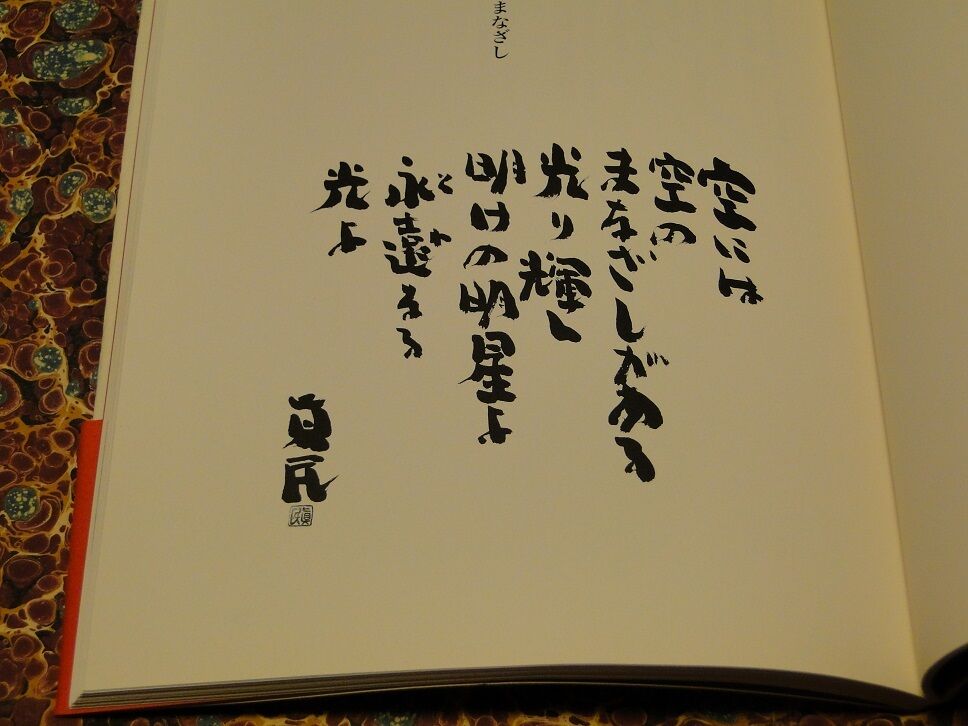 まなざし
空には
空の
まなざしがある
光り輝く
明けの明星よ
永遠なる
とわ
光よ
真民